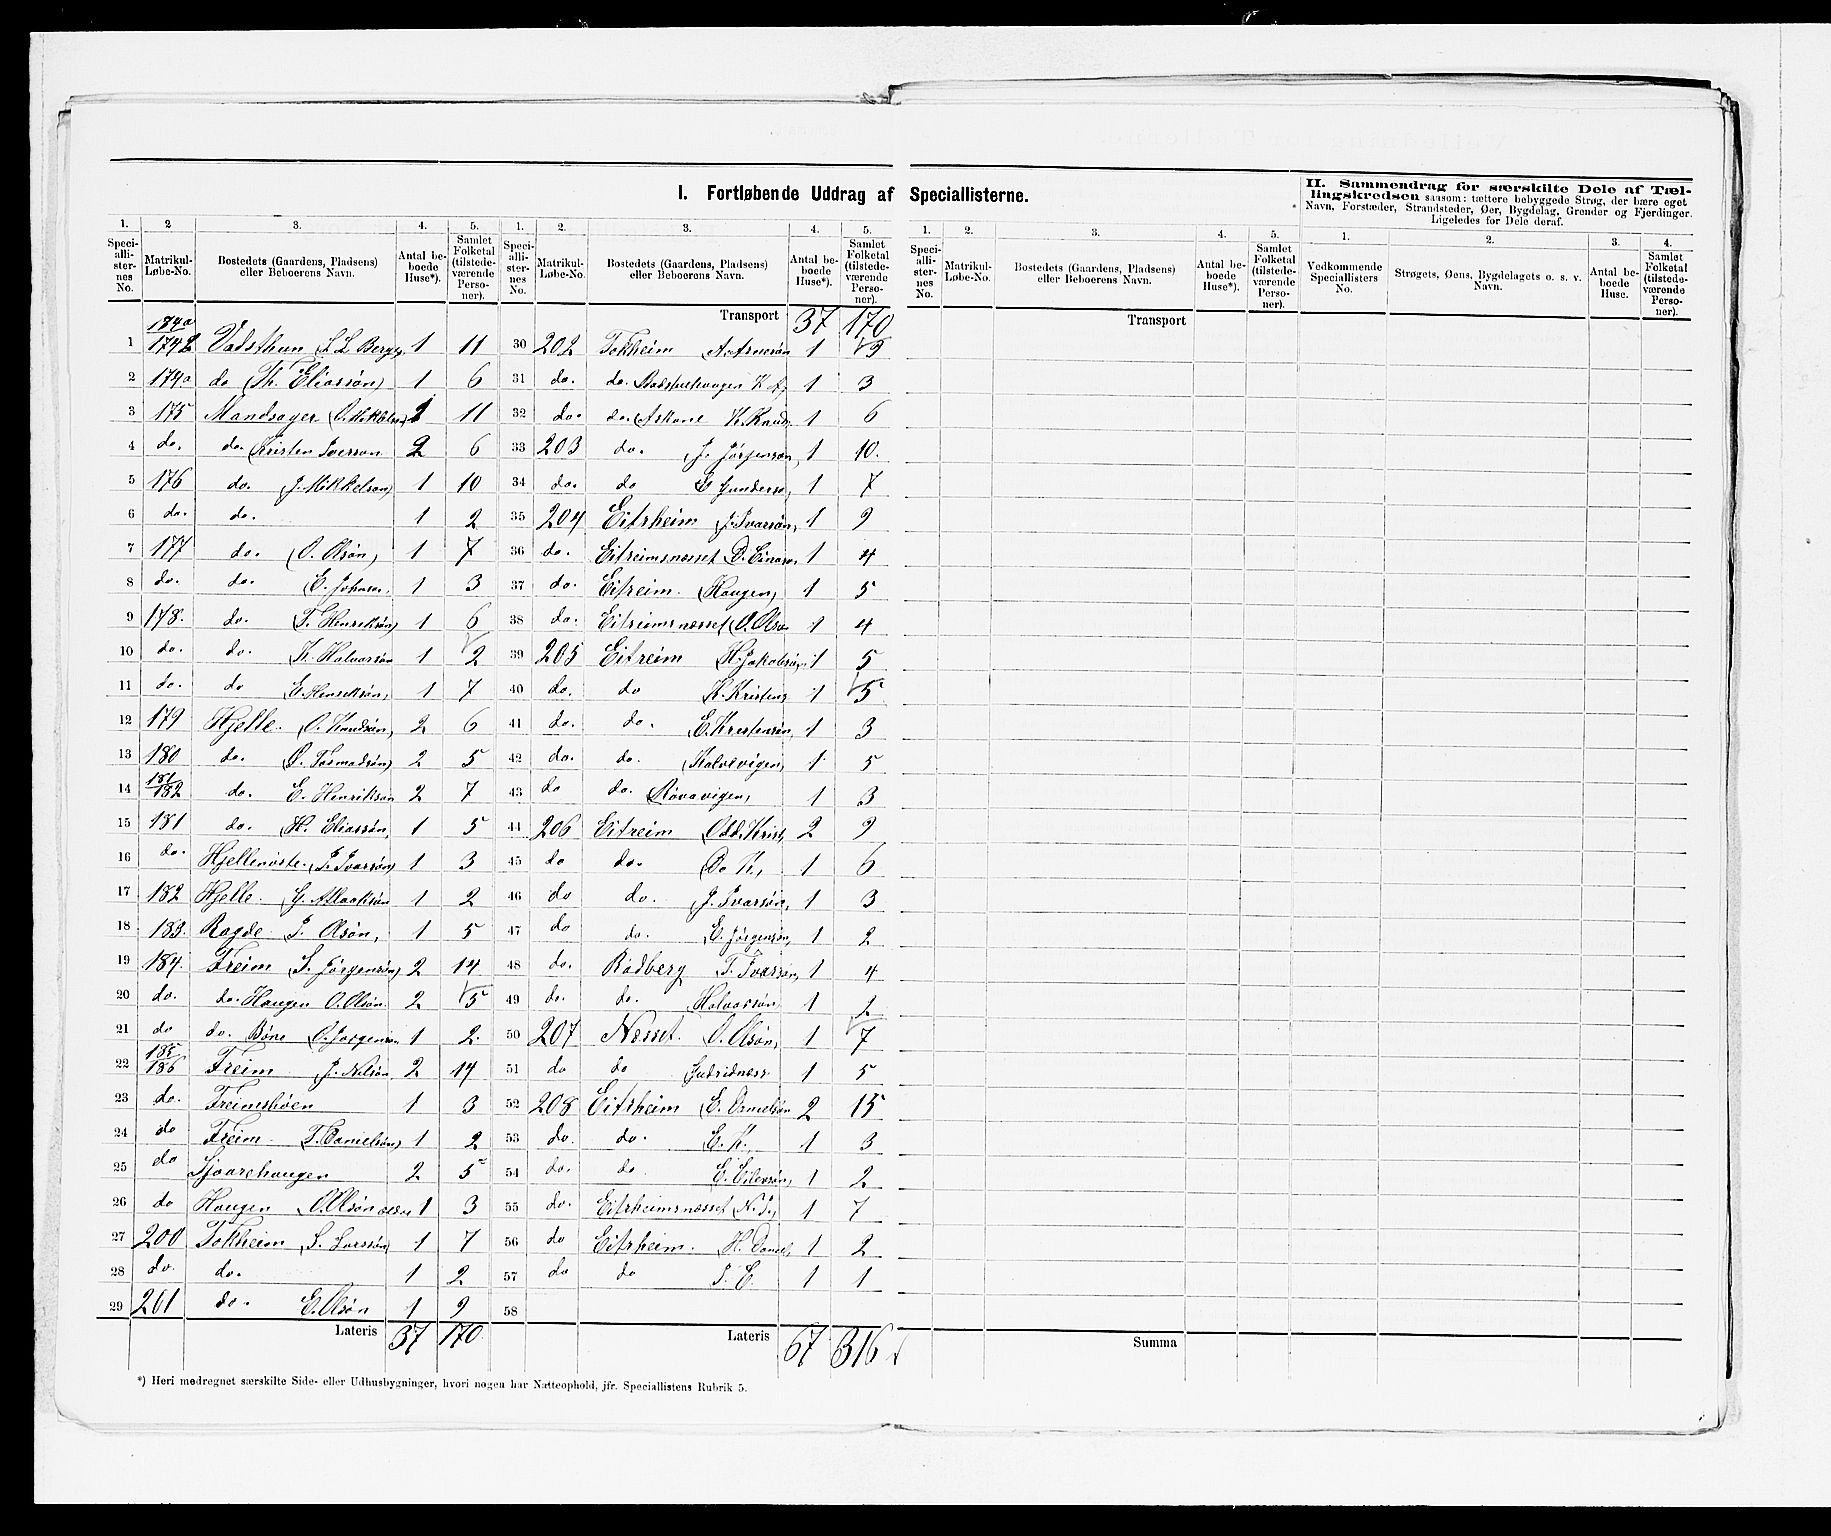 I. Fortløbende Uddrag af Speciallisterne.
II. Sammendrag for særskilte Dele af Tællingskredsen saasom: tættere bebyggede Strøg, der bære eget Navn, Forstæder, Strandsteder, Øer, Bygdelag, Grender og Fjerdinger. Ligeledes for Dele deraf.
1. 2 3. 4. 5. 1. 2. 3. 4. 5. 1. 2. 3. 4. 5. 1. 2. 3. 4.
Speciallisternes No. Matrikul-Løbe-No. Bostedets (Gaardens, Pladsens) eller Beboerens Navn. Antal beboede Huse*). Samlet Folketal (tilstedeværende Personer).
Speciallisternes No. Matrikul-Løbe-No. Bostedets (Gaardens, Pladsens) eller Beboerens Navn. Antal beboede Huse*). Samlet Folketal (tilstedeværende Personer).
Speciallisternes No. Matrikul-Løbe-No. Bostedets (Gaardens, Pladsens) eller Beboerens Navn. Antal beboede Huse*). Samlet Folketal (tilstedeværende Personer).
Vedkommende Speciallisters No. Strøgets, Øens, Bygdelagets o. s. v. Navn. Antal beboede Huse. Samlet Folketal (tilstedeværende Personer).
1 174a 1742 1 11
2 174a do (Th. Eliassøn) 1 6
3 175 Mandsager 11
4 do. do. (Kristen Iverson 2 6
5 176 do. J. Mikkelson) 1 10
6 do. do. 1 2
7 177 do. (O. Olsøn) 1 7
8 do. do. 1 3
9 178. do. T. Henriksøn) 1 6
10 do. do. K. Halvorsøn 1 2
11 do. do E. Henriksøn, 1 7
12 179 Hjelle. O. Knudsøn, 2 6
13 180 do. 2 5
14 181/182 do. E. Henrikson 2 7
15 181 do. H. Eliassøn, 1 5
16 do. 1 3
17 182 Hjelle. 1 2
18 183. Ragde. 1 5
19 184. Freim S. Jørgensøn) 2 14
20 do. do. Haugen O. Olsøn. 2 5
21 do do. Bøne 1 2.
22 185/186 Freim J. Nilsøn 2 14
23 do. Freimshøen 1 3
24 do Freim. T. Danielsøn) 1 2
25 do 2 5
26 do Haugen 1 3
27 200 Tokheim S. Larssøn) 1 7
28 do. do. 1 2
29 201 do. E. Olsøn 1 9
Lateris 37 170
Transport 37 170
30 202 Tokheim A. Arnesøn 1 9
31 do. do. 1 3
32 do. do. 1 6
33 203 do. J. Jörgensøn, 1 10.
34 do. do 1 7
35 204 Eitrheim J. Ivarsøn, 1 9
36 do. Eitreimsnæsset 1 4
37 do. Eitreim. (Haugen) 1 5
38 do. Eitreimsnæsset (O. Olsø 1 4
39 205 Eitreim H. Jakobsøn, 1 5
40 do. do K. Kristens 1 5
41 do. do. E. Kristensøn, 1 3
42 do. do. 1 5
43 do do. 1 3
44 206 Eitreim Odd. Krist, 2 9
45 do do. Do K., 1 6
46 do do. J. Ivarsøn, 1 3
47 do do. E. Jørgensøn, 1 2
48 do. T. Ivarsøn, 1 4
49 do. do. Halvorsøn 1
50 207 Næsset. O. Olsøn, 1 7
51 do do 1 5
52 208 Eitrheim 2 15
53 do. do. E. K. 1 3
54 do. do 1 2
55 do. Eitrheimsnæsset 1 7
56 do Eitrheim. H. Daniel, 1 2
57 do do 1 1
58
Lateris 67 316
Transport
Summa
*) Heri medregnet særskilte Side- eller Udhusbygninger, hvori nogen har Natteophold, jfr. Speciallistens Rubrik 5.